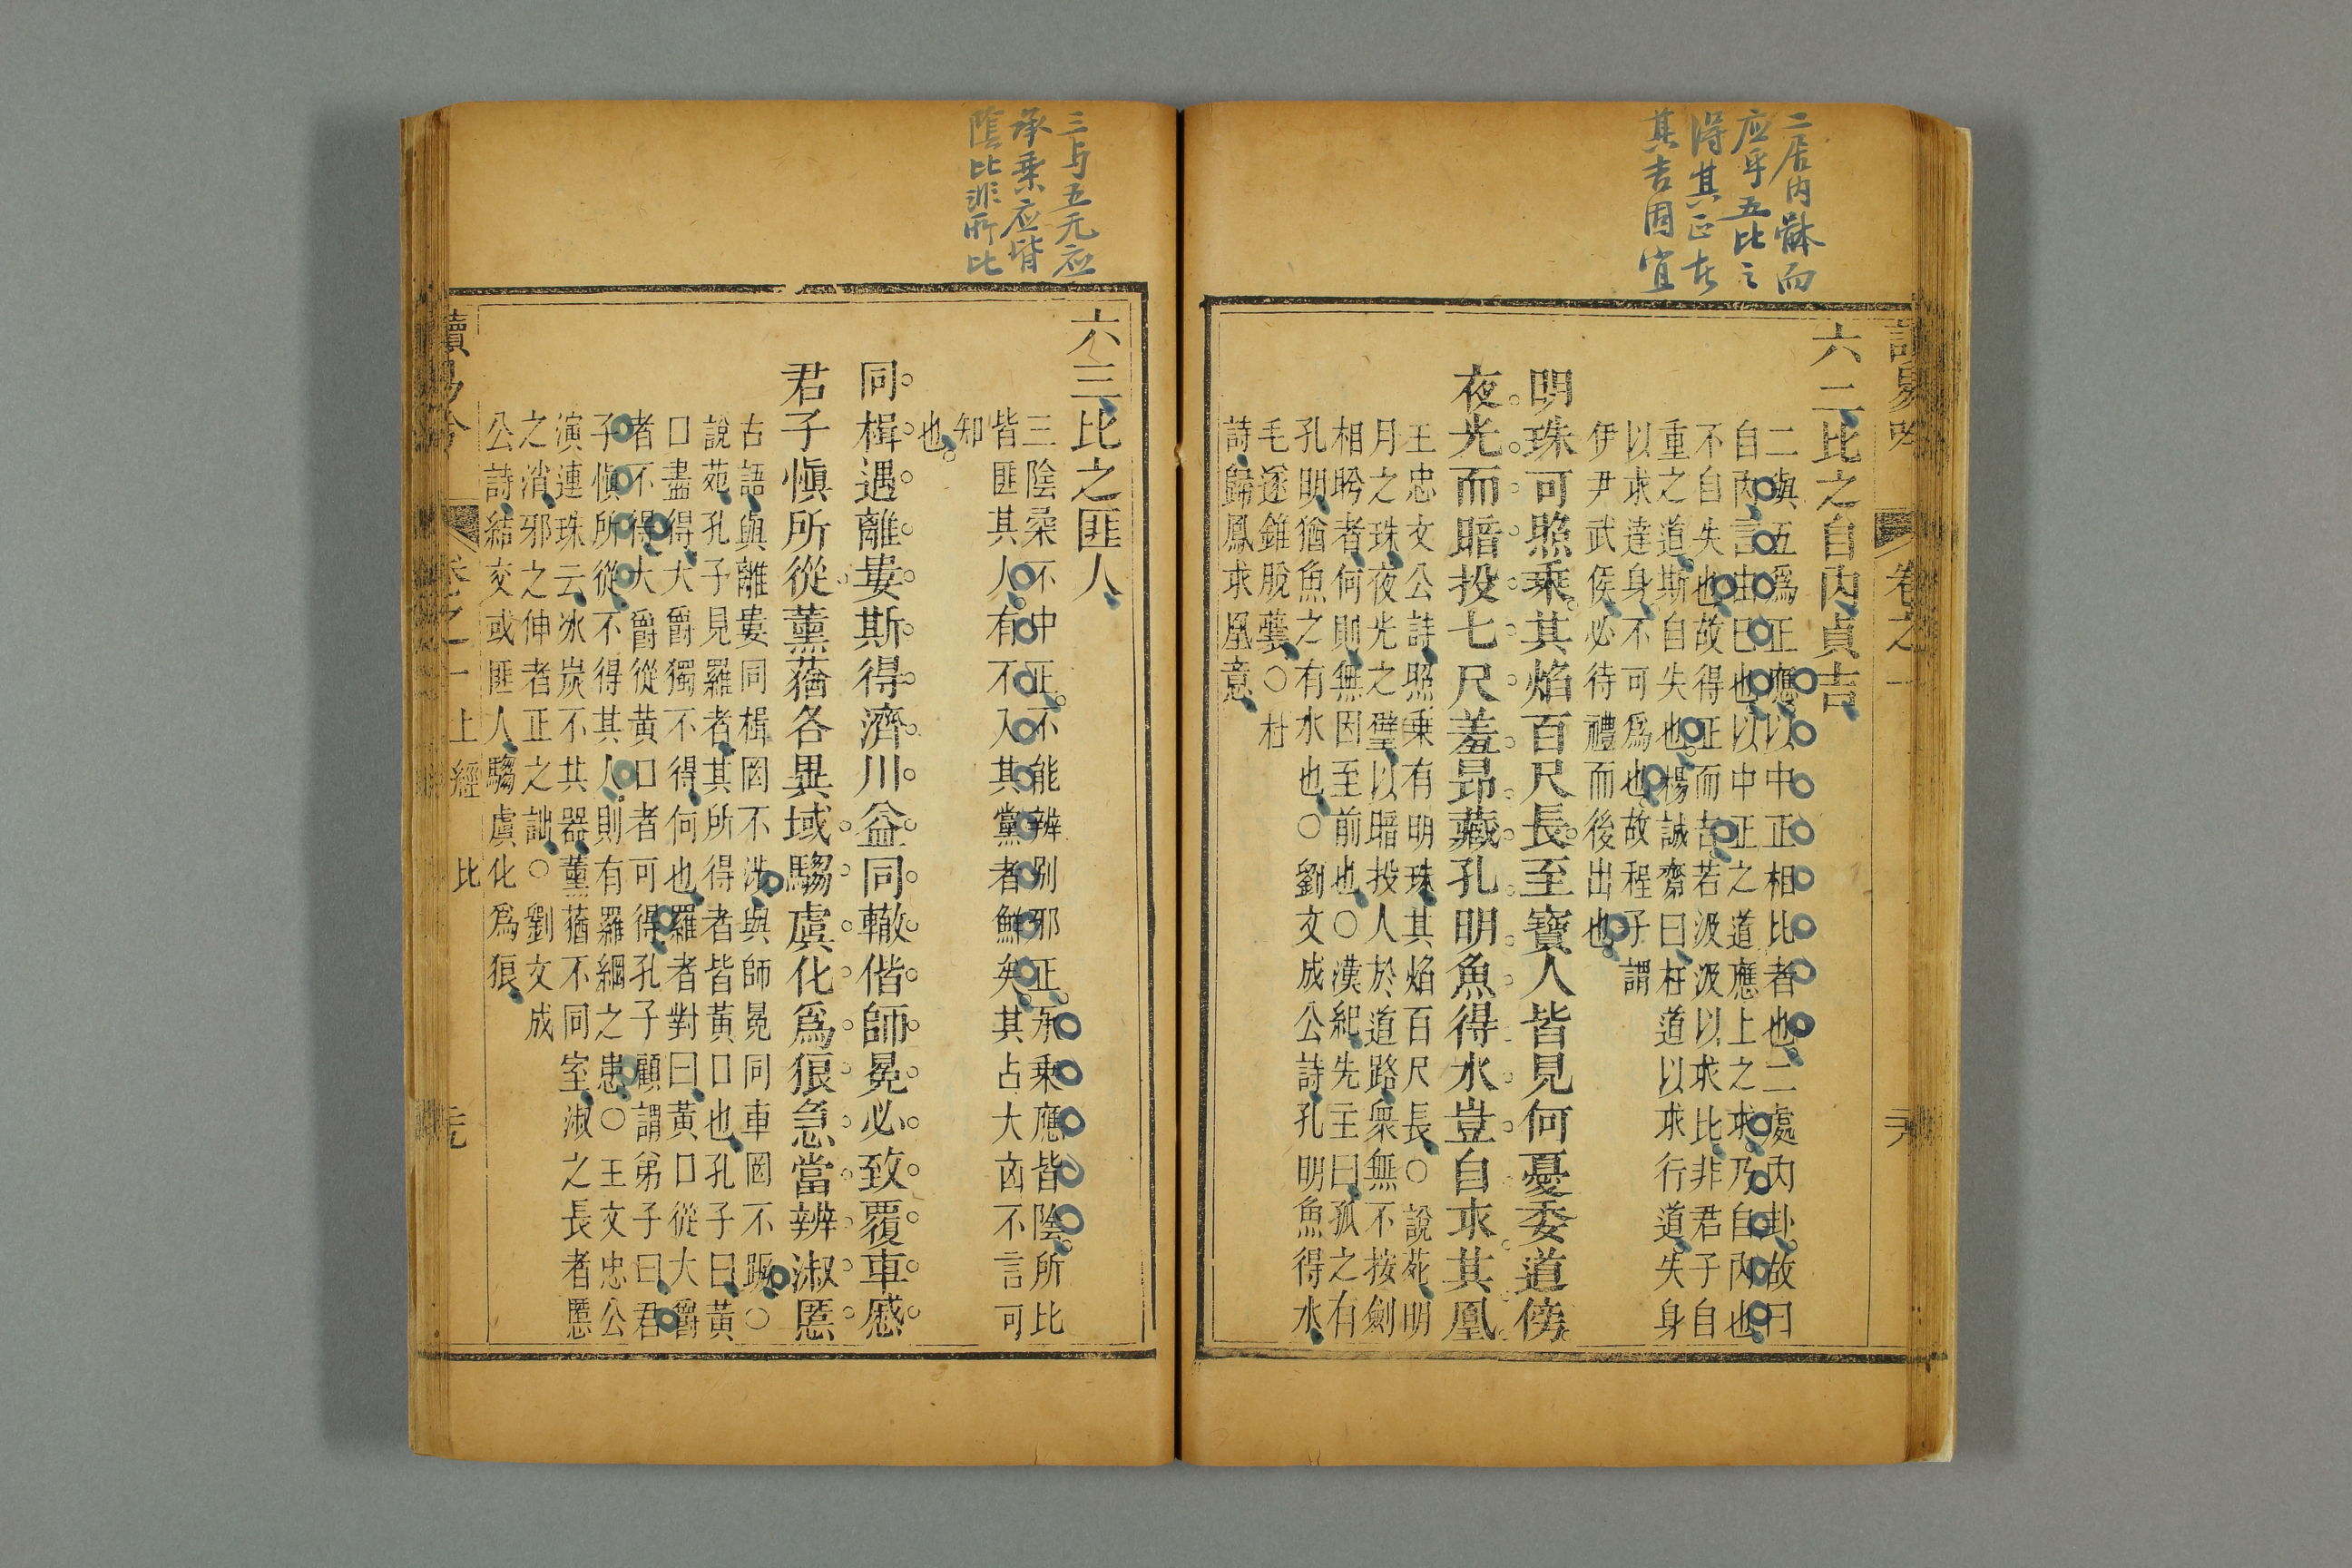 二居内體而
应乎五比之
得其正在
其吉固宜
卷之一
六二比之自内貞吉
二與五爲正應以中正相比者也二處内卦故曰
自内言由已也以中正之道應上之求乃自内也
不自失也故得正而吉若汲汲以求比非君子自
重之道斯自失也楊誠齋曰枉道以求行道失身
以求達身不可爲也故程子謂
伊尹武侯必待禮而後出也
明珠可照乗其焰百尺長至寶人皆見何憂委道傍
夜光而暗投七尺羞昂藏孔明魚得水豈自求其凰
王忠文公詩照乗有明珠其焰百尺長○說苑明
月之珠夜光之璧以暗投人於道路衆無不按劍
相盻者何則無因至前也○漢紀先主曰孤之有
孔明猶魚之有水也○劉文成公詩孔明魚得水
毛遂錐脫囊○村
詩歸鳳求凰意
三与五无应
承乗应皆
陰比非所比
六三比之匪人
三陰柔不中正不能辨别邪正承乗應皆陰所比
皆匪其人有不入其黨者鮮矣其占大凶不言可
知
也
同楫遇離婁斯得濟川益同轍偕師冕必致覆車慼
君子愼所從薰蕕各異域騶虞化爲狼急當辨淑慝
古語與離婁同楫罔不涉與師冕同車罔不躓○
說苑孔子見羅者其所得者皆黃口也孔子曰黃
口盡得大爵獨不得何也羅者對曰黃口從大爵
者不得大爵從黃口者可得孔子顧謂弟子曰君
子愼所從不得其人則有羅網之患○王文忠公
演連珠云冰炭不共器薰蕕不同室淑之長者慝
之消邪之伸者正之詘○劉文成
公詩結交或匪人騶虞化爲狼
讀易吟 卷之一 上經 比